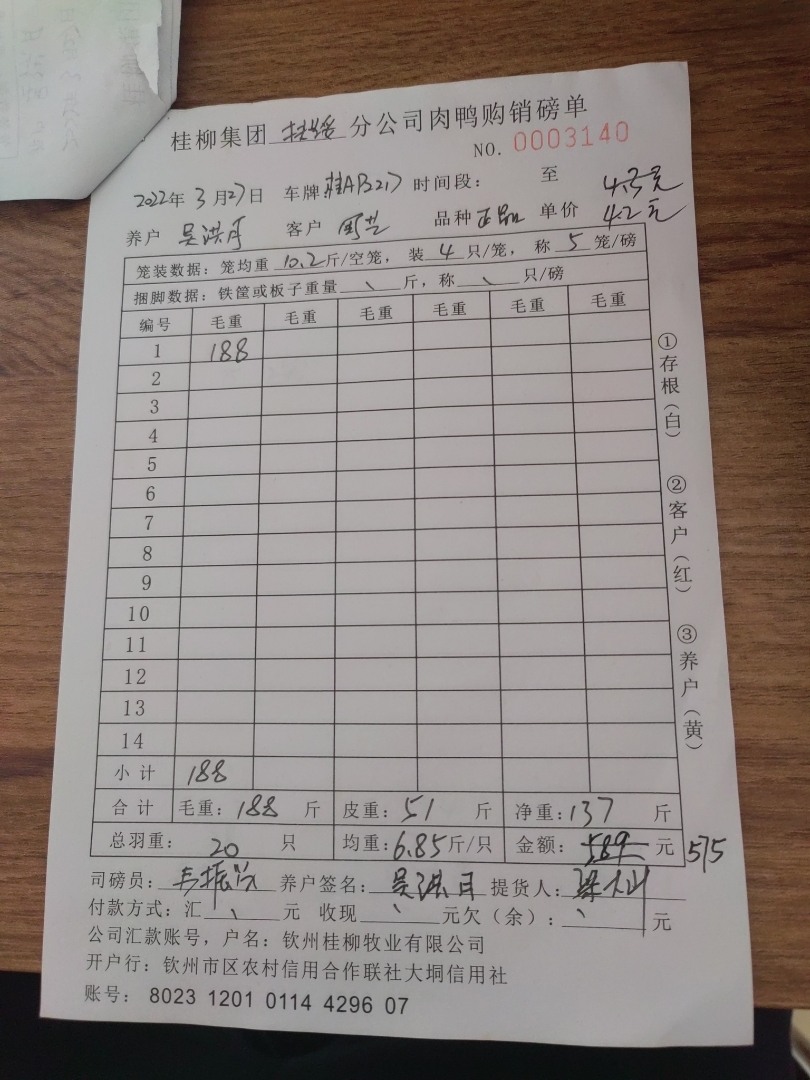 桂柳集团扶绥分公司肉鸭购销磅单
NO. 0003140
2022年3月27日 车牌桂AB217 时间段： 至 4.3元
养户 吴洪月 客户 周芝 品种正品 单价 4.2元
笼装数据：笼均重10.2斤/空笼，装4只/笼，称5笼/磅
捆脚数据：铁筐或板子重量、斤，称、只/磅
编号 毛重 毛重 毛重 毛重 毛重 毛重
1 188
2
3
4
5
6
7
8
9
10
11
12
13
14
小计 188
合计 毛重：188斤 皮重：51斤 净重：137斤
总羽重：20只 均重：6.85斤/只 金额：589元 575
司磅员： 养户签名：吴洪月 提货人：
付款方式：汇、元 收现、元欠（余）：、元
公司汇款账号，户名：钦州桂柳牧业有限公司
开户行：钦州市区农村信用合作联社大垌信用社
账号：8023 1201 0114 4296 07
①存根（白）
②客户（红）
③养户（黄）